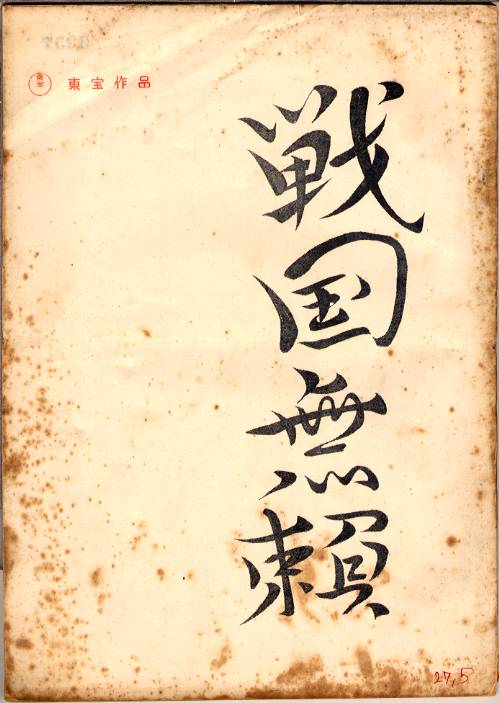 東宝 東宝作品
戦国無頼
27,5